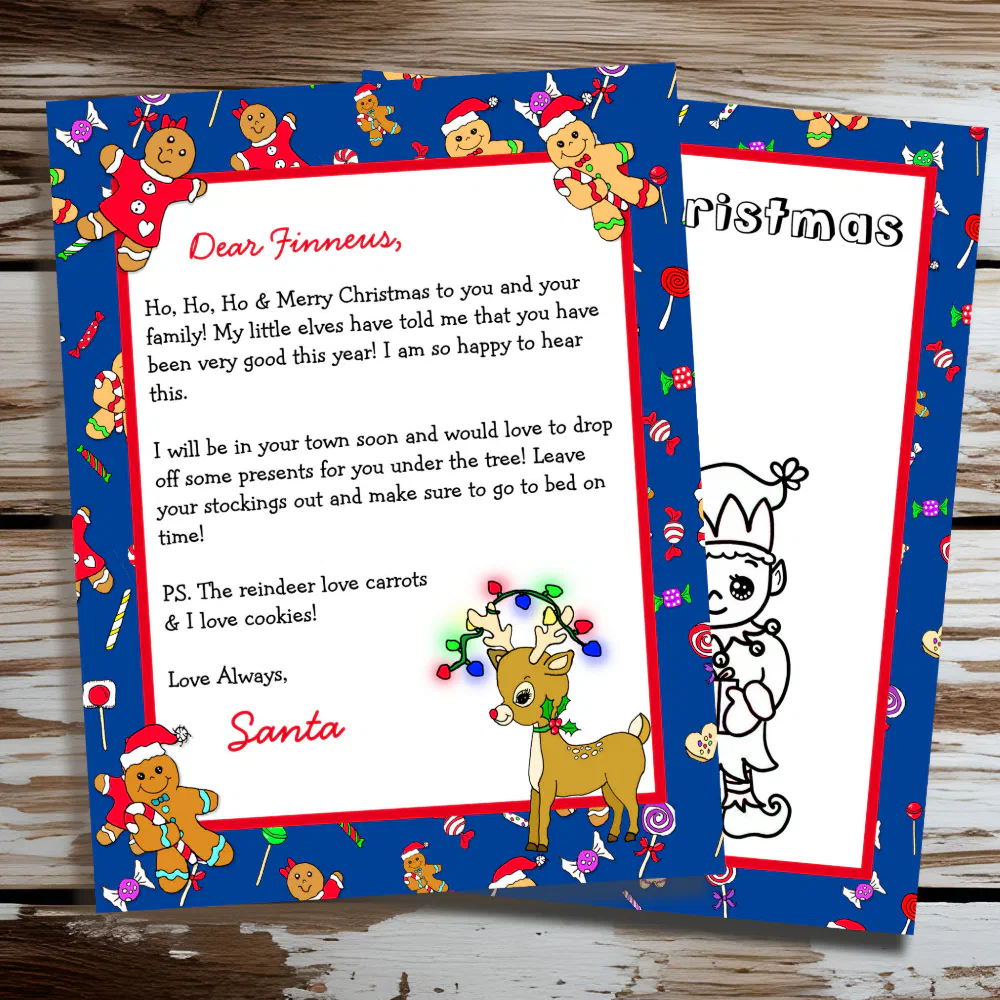 Dear Finneus,
Ho, Ho, Ho & Merry Christmas to you and your
family! My little elves have told me that you have
been very good this year! I am so happy to hear
this.
I will be in your town soon and would love to drop
off some presents for you under the tree! Leave
your stockings out and make sure to go to bed on
time!
PS. The reindeer love carrots
& I love cookies!
Love Always,
Santa
ristmas